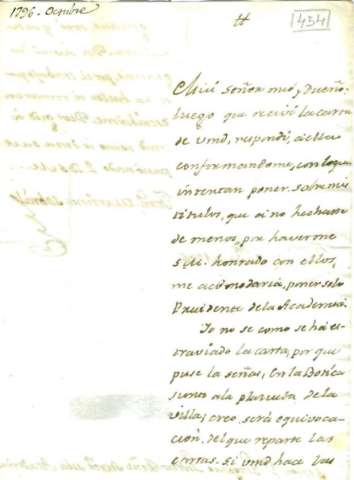 1796. Octubre
tt
434
Mui señor mio, y Dueño:
luego que recivi la carta
de vmd, respondi, a ella
conformandome, con lo que
intentan poner, sobre mis
titulos, que si no hechasen
de menos, por haverme
S. M. honrado con ellos,
me acomodaria, poner solo
Presidente de la Academia.
Yo no se como se há es-
traviado la carta, por que
puse la señas, en la Botica
junto a la plazuela de la
villa; creo, será equivoca-
ción, del que reparte las
cartas. Si vmd hace las